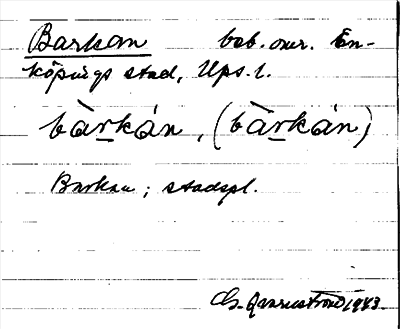 Barkan beb. omr. En-
köpings stad, Ups. l.
bàrkán, (bàrkán)
Barkan; stadspl.
G. 1943.